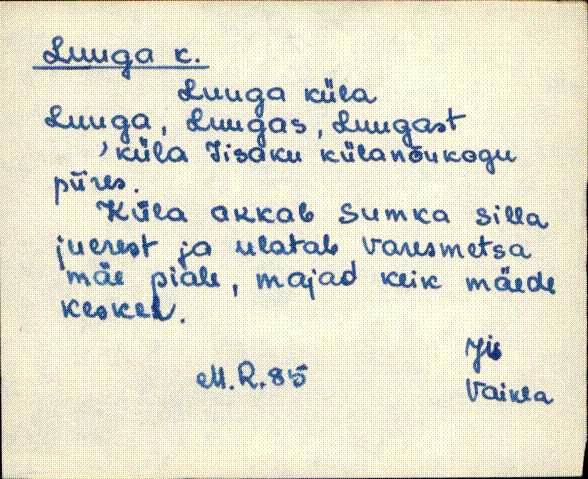 Luuga k.
Luuga küla
Luuga, Luugas, Luugast
'küla Iisaku külanõukogu
piires.
Küla akkab Sumka silla
juurest ja ulatab Varesmetsa
mäe piale, majad keik mäede
keskel.
Iis
M.R.85
Vaikla